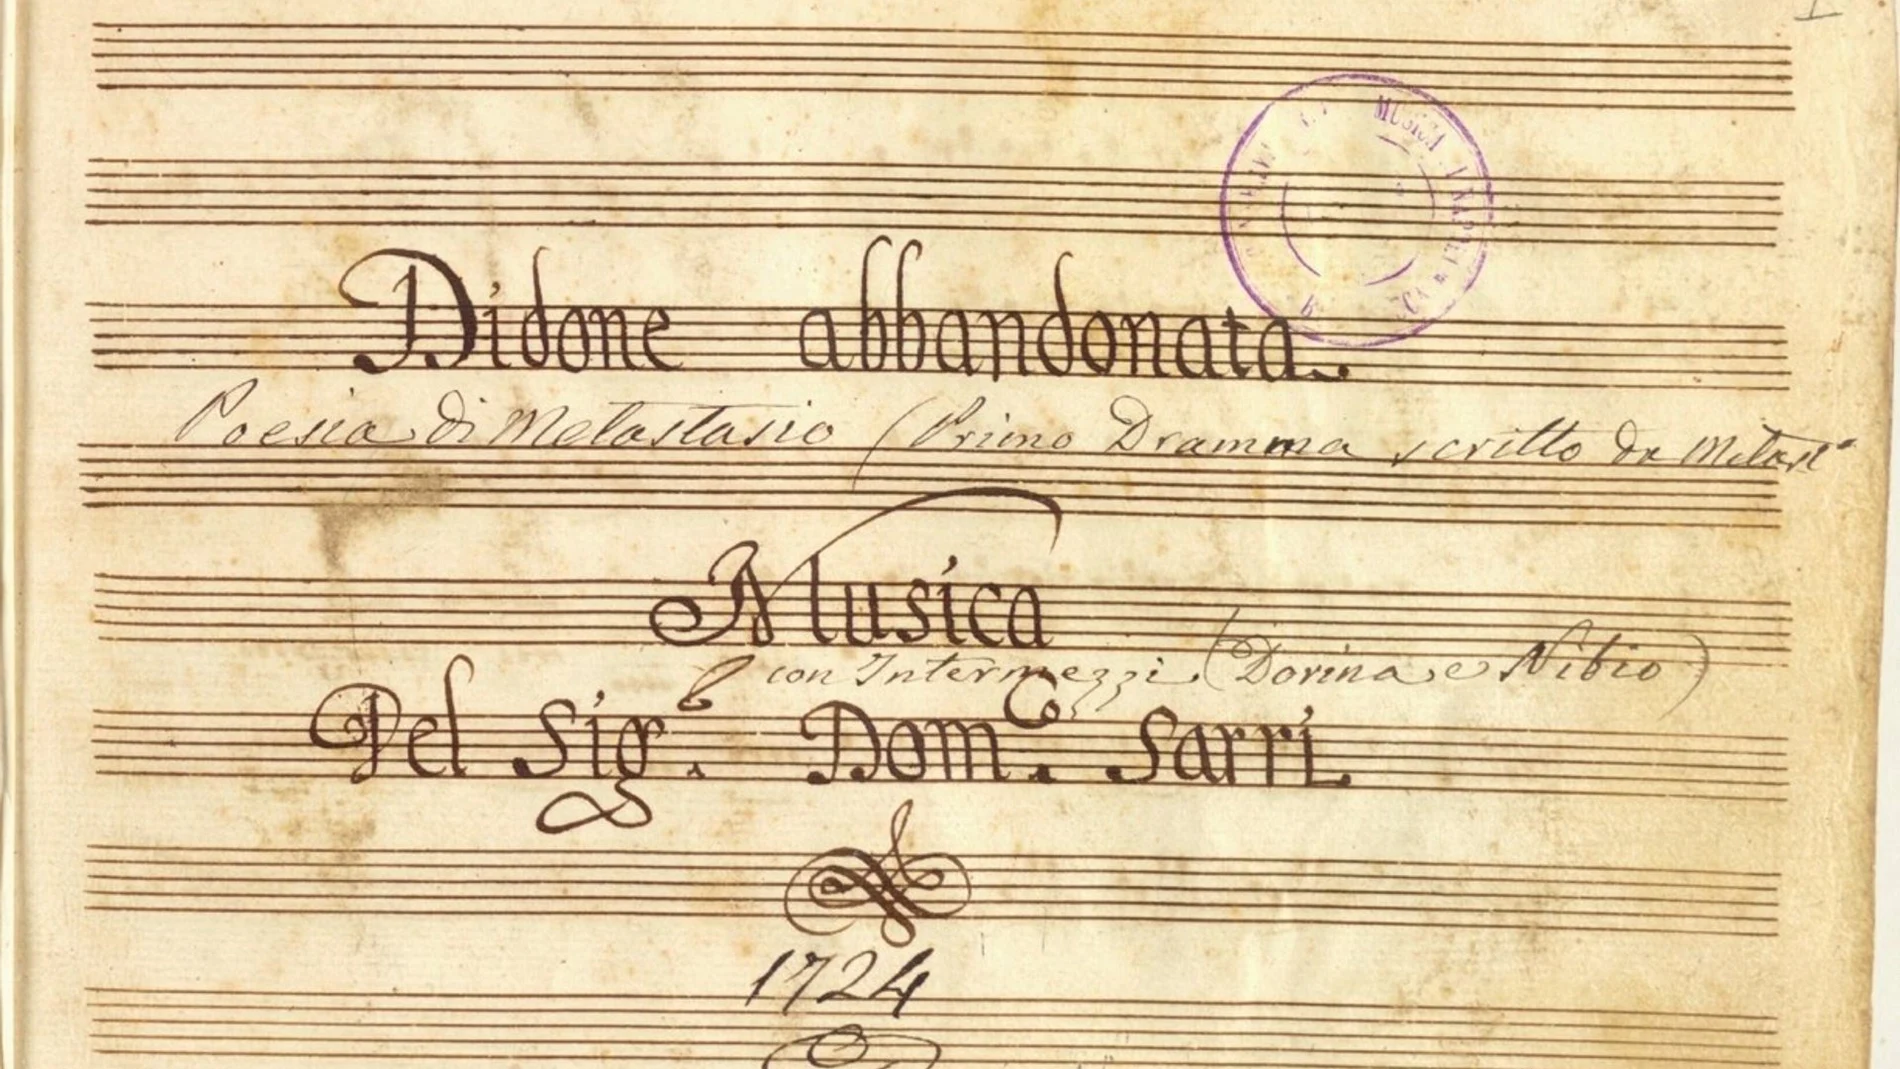 Didone abbandonata
Poesia di Metastasio (Primo Dramma scritto da Metast
Musica
con Intermezzi (Dorina e Nibio)
Del Sig.e Dom.co Sarri
1724
MUSICA NAPOLI